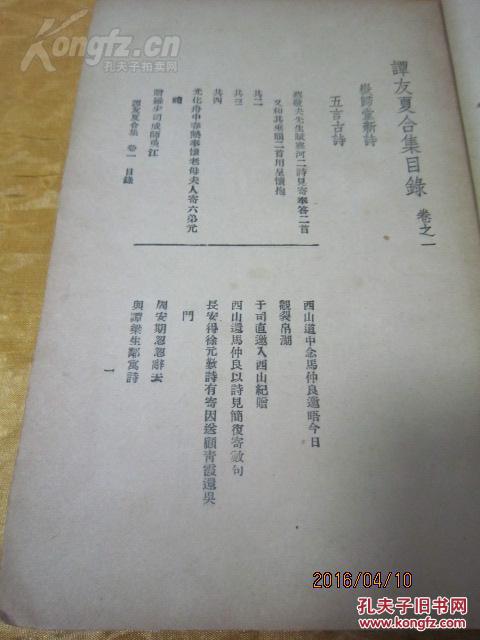 Kongfz.com
孔夫子旧书网
譚友夏合集目錄 卷之一
嶽歸堂新詩
五言古詩
敬夫先生賦寒河二詩見寄奉答二首
又和其來韻二首用呈懷抱
其二
其三
其四
光化舟中春熱奉懷老母夫人寄六弟元
禮
少司成師南江
譚友夏合集 卷一 目錄
西山道中念馬仲良邀晤今日
觀裂帛湖
于司直邀入西山紀贈
西山遺馬仲良以詩見簡復寄數句
長安得徐元歎詩有寄因送顧青霞還吳
門
周安期忽忽辭去
與譚梁生鄰寓詩
一
2016/04/10
孔夫子旧书网
Kongfz.com